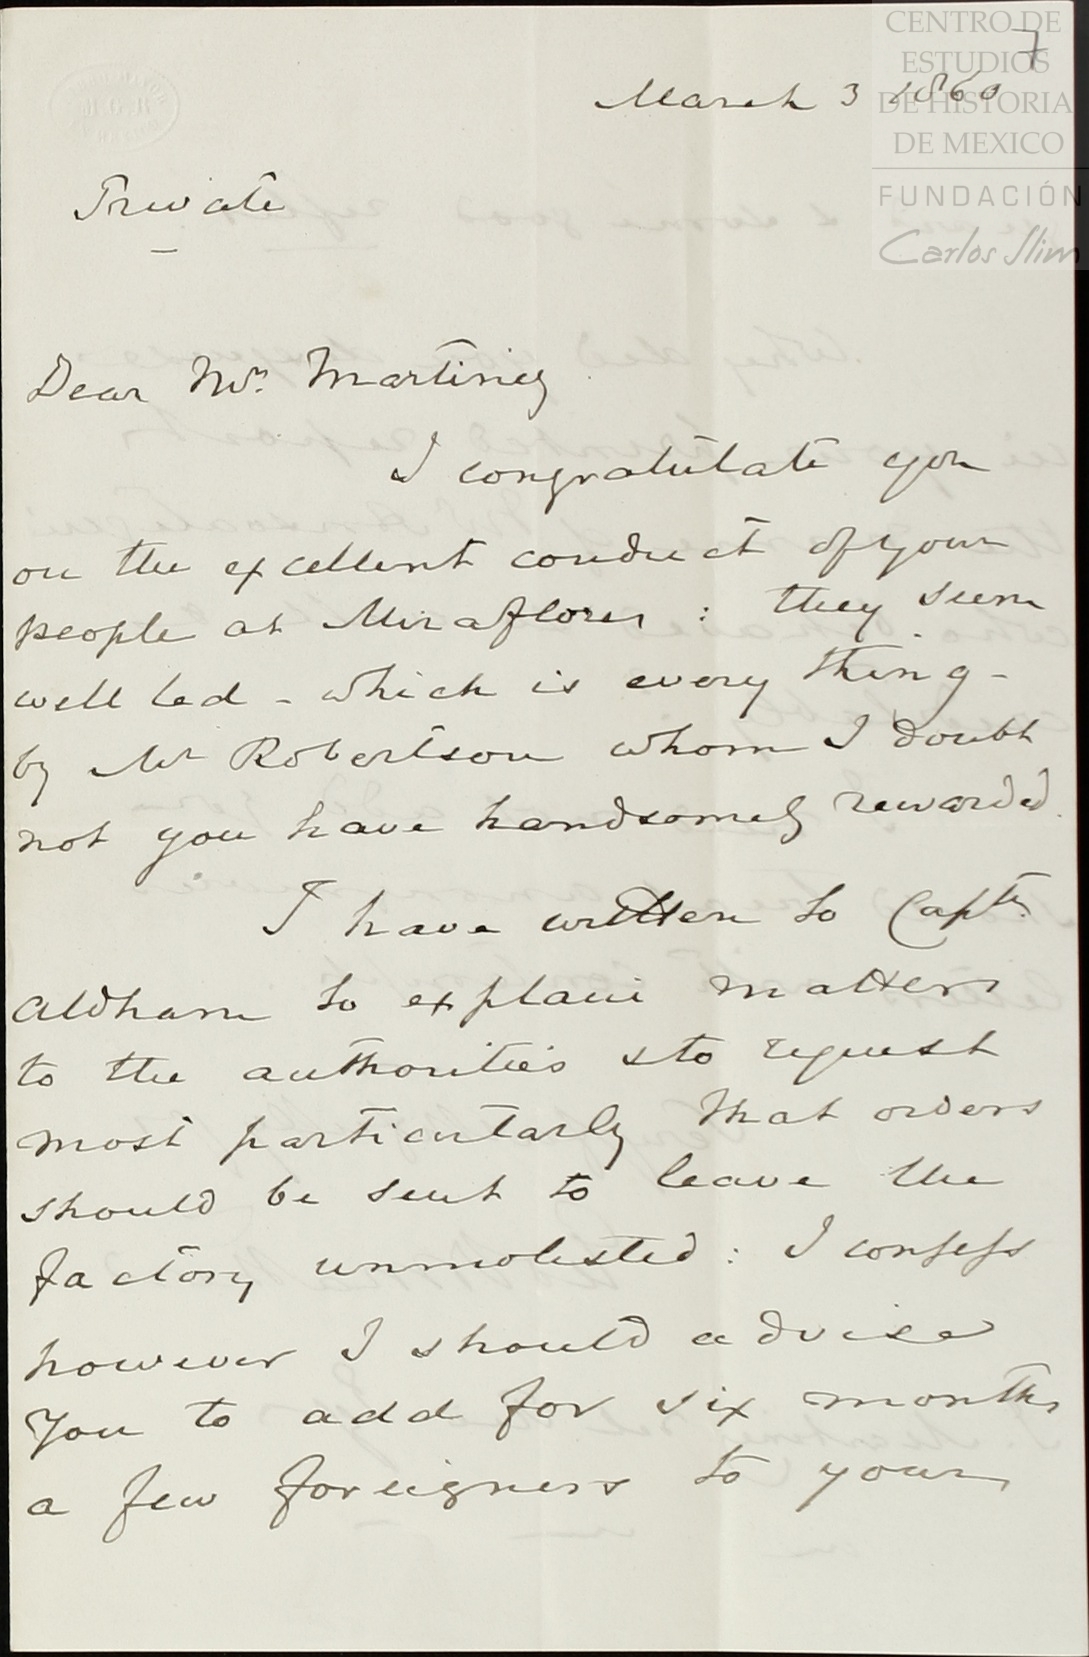 CENTRO DE
ESTUDIOS
DE HISTORIA
DE MEXICO
FUNDACIÓN
Carlos Slim
7
March 3 1860
Private
Dear Mr. Martinez
I congratulate you
on the excellent conduct of your
people at Miraflores : they seem
well led - which is every thing -
by Mr Robertson whom I doubt
not you have handsomely rewarded.
I have written to Captn.
Aldham to explain matters
to the authorities & to request
most particularly that orders
should be sent to leave the
factory unmolested : I confess
however I should advise
you to add for six months
a few foreigners to your